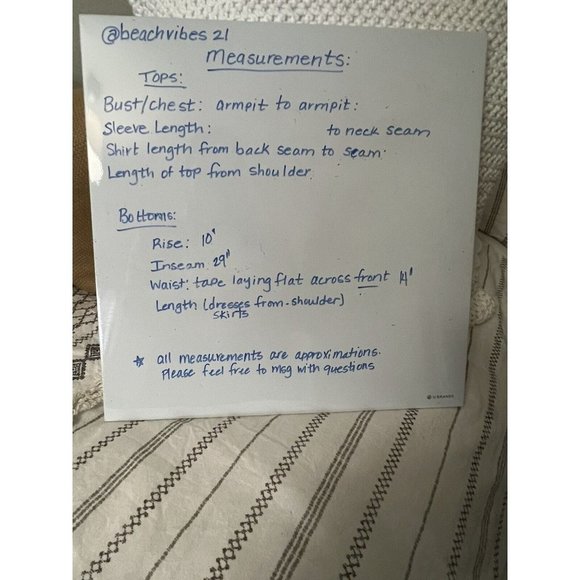 @beachvibes 21
Measurements:
Tops:
Bust/chest: armpit to armpit:
Sleeve Length: to neck seam
Shirt length from back seam to seam.
Length of top from shoulder
Bottoms:
Rise: 10"
Inseam 29"
Waist: tape laying flat across front 14"
Length (dresses from shoulder)
skirts
* all measurements are approximations.
Please feel free to msg with questions
U BRANDS